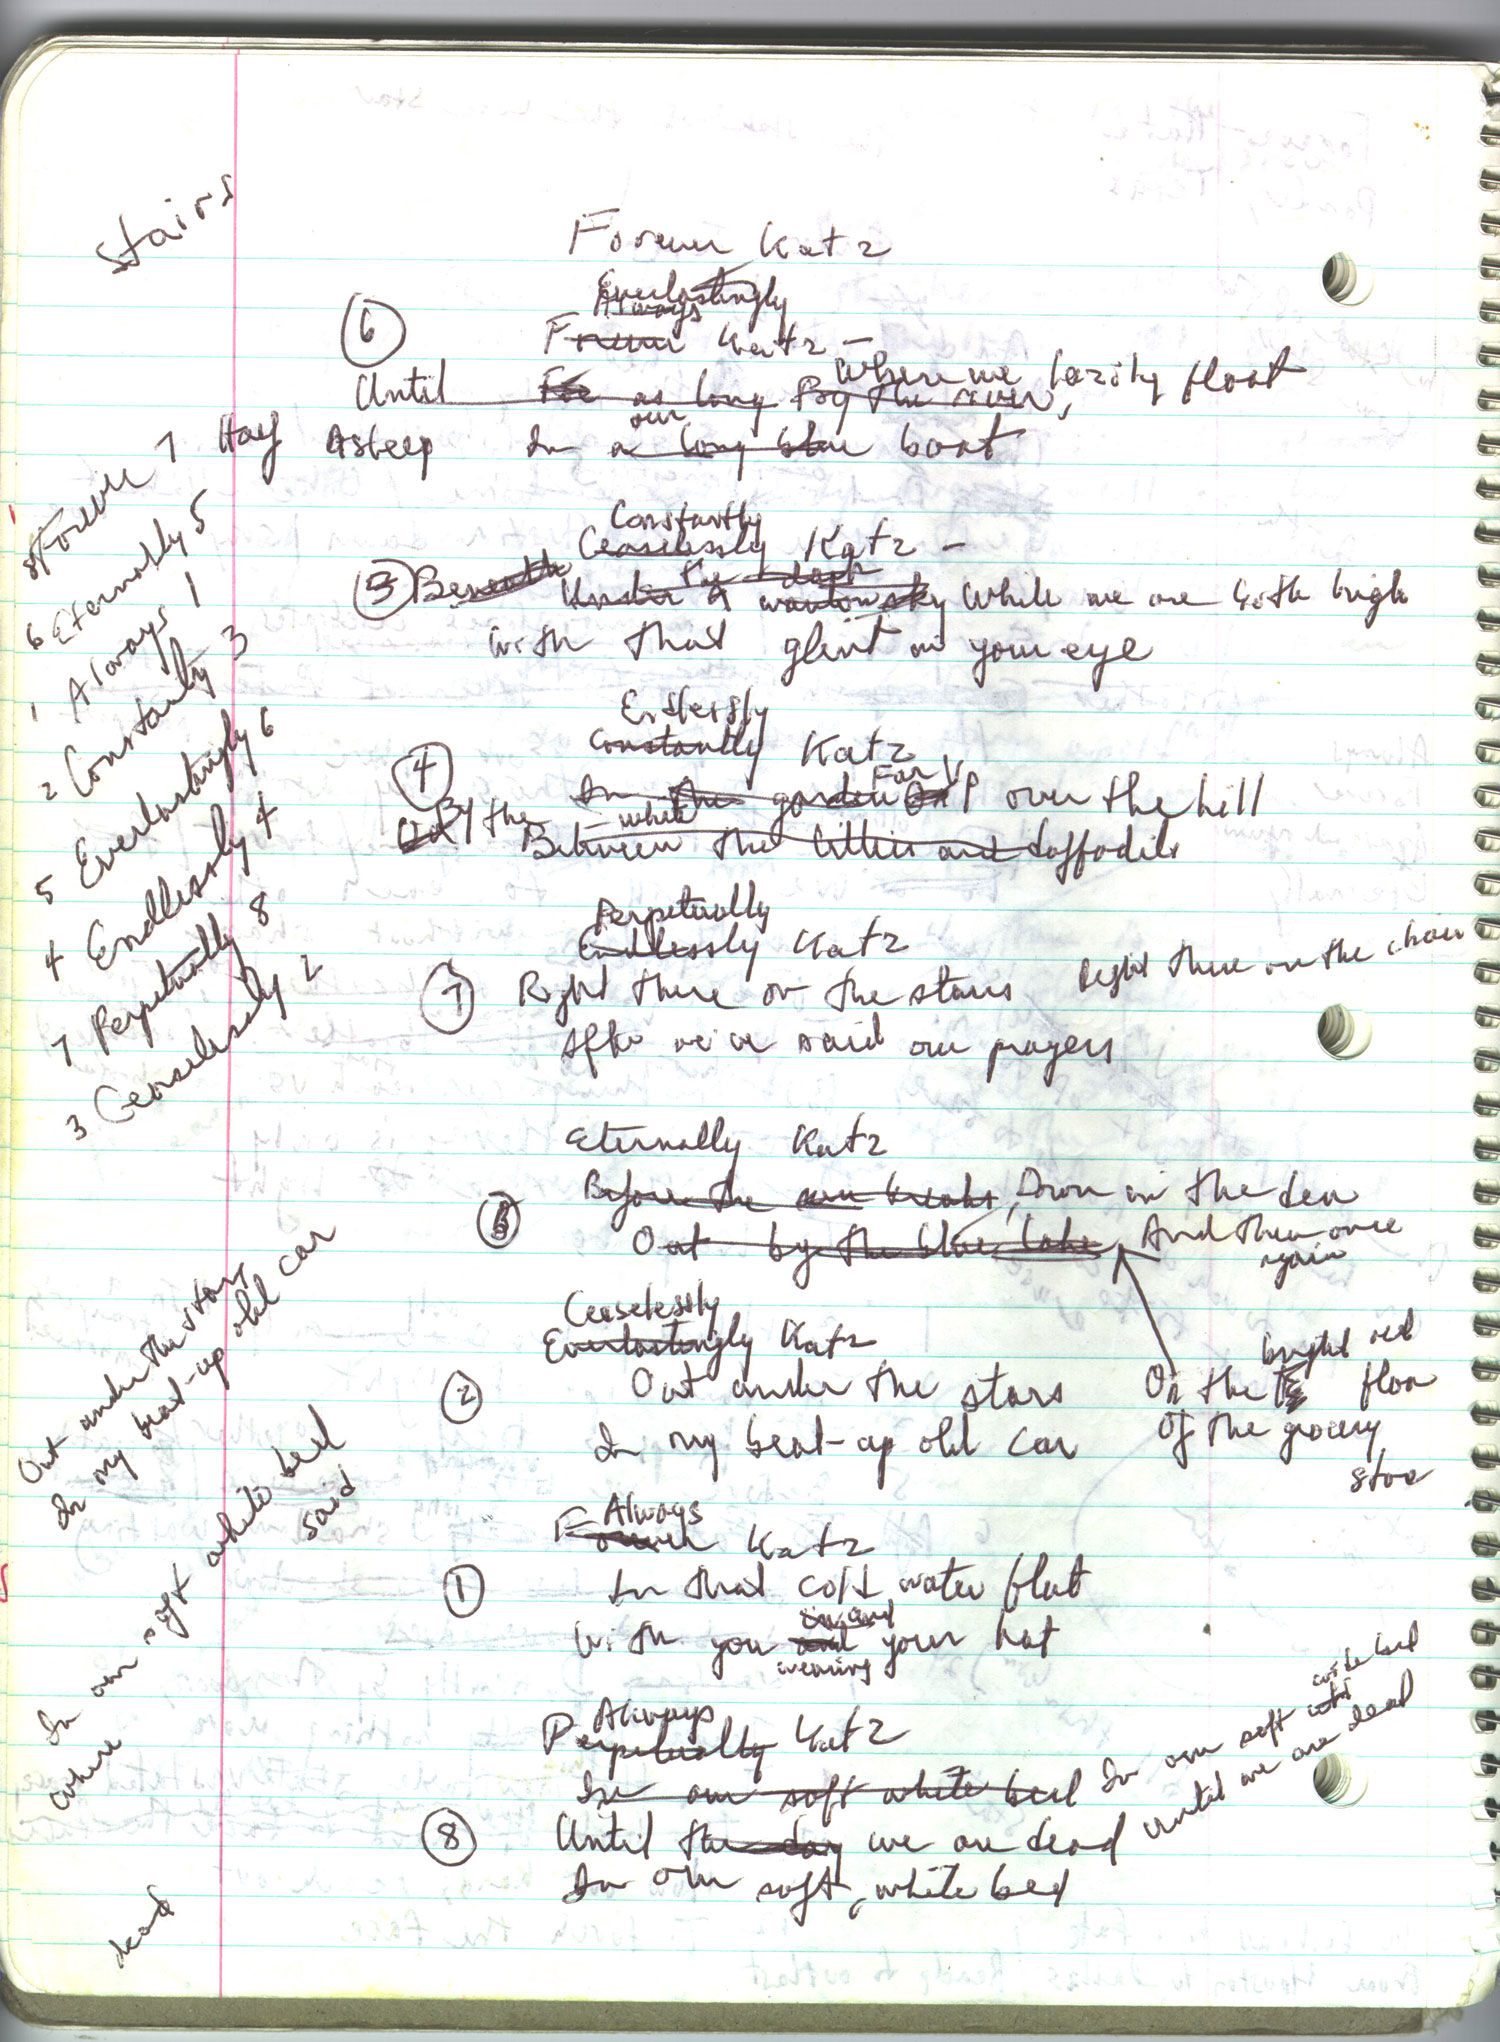 Stairs
Forever Katz
Everlastingly
Always
⑥ Forever Katz –
where we lazily float
Until For as long By the river,
our
Half Asleep In a long blue boat
Constantly
Ceaselessly Katz –
The deep
③ Beneath Under a wanton sky While we are both high
with that glint in your eye
Endlessly
Constantly Katz
Far Up
④ In the garden Or Up over the hill
while
By the Between the lillies and daffodils
Perpetually
Endlessly Katz
⑦ Right there on the stairs Right there on the chair
After we've said our prayers
Eternally Katz
Before the sun breaks, Down in the den
⑤ Out by the blue lake, And then once
again
Ceaselessly
Everlastingly Katz
bright red
② Out under the stars On the floor
In my beat-up old car Of the grocery
store
Always
Forever Katz
① In that cold water flat
in and
With you and your hat
wearing
Always
Perpetually Katz
In our soft white bed In our soft white bed
⑧ Until the day we are dead Until we are dead
In our soft, white bed
8 Forever 7
6 Eternally 5
1 Always 1
2 Constantly 3
5 Everlastingly 6
4 Endlessly 4
7 Perpetually 8
3 Ceaselessly 2
Out under the stars
In my beat-up old car
In our soft white bed
where said
dead